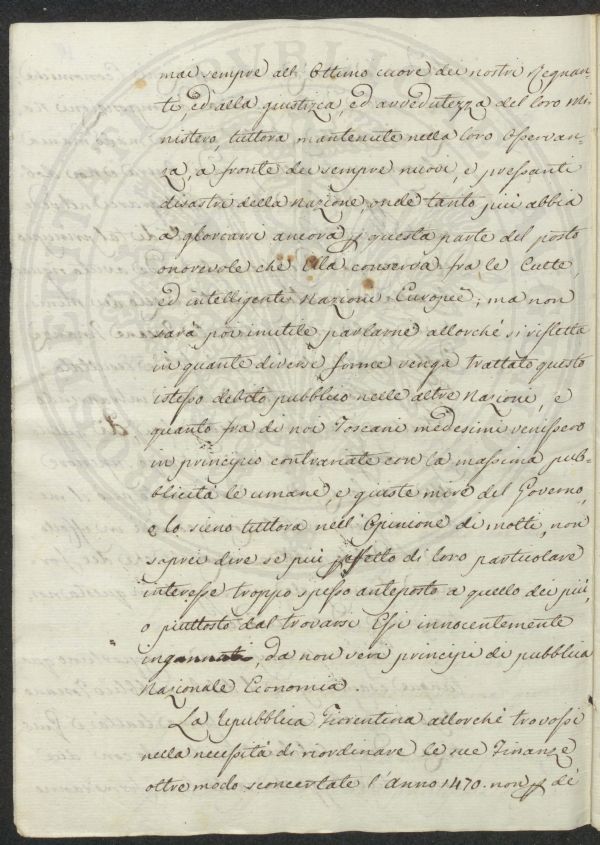 mai sempre all' Ottimo cuore dei nostri Regnan=
ti, ed alla giustizia, ed avvedutezza del loro Mi=
nistero, tuttora mantenute nella loro Osservan=
za, a fronte dei sempre nuovi, e pressanti
disastri della Nazione, onde tanto più abbia
a gloriarsi ancora p questa parte del posto
onorevole che Ella conserva fra le Culte,
ed intelligenti Nazioni Europèe; ma non
sarà poi inutile parlarne allorchè si rifletta
in quante diverse forme venga trattato questo
istesso debito pubblico nelle altre Nazioni, e
quanto fra di noi Toscani medesimi venissero
in principio contrariate con la massima pub=
blicità le umane, e queste mire del Governo,
e lo sieno tuttora nell' Opinione di molti, non
saprei dire se più p effetto di loro particolare
interesse troppo spesso anteposto a quello dei più,
o piuttosto dal trovarsi Essi innocentemente
ingannati, da non veri principj di pubblica
Nazionale Economia.
La Repubblica Fiorentina allorchè trovossi
nella necessità di riordinare le sue Finanze
oltre modo sconcertate l'anno 1470. non p di